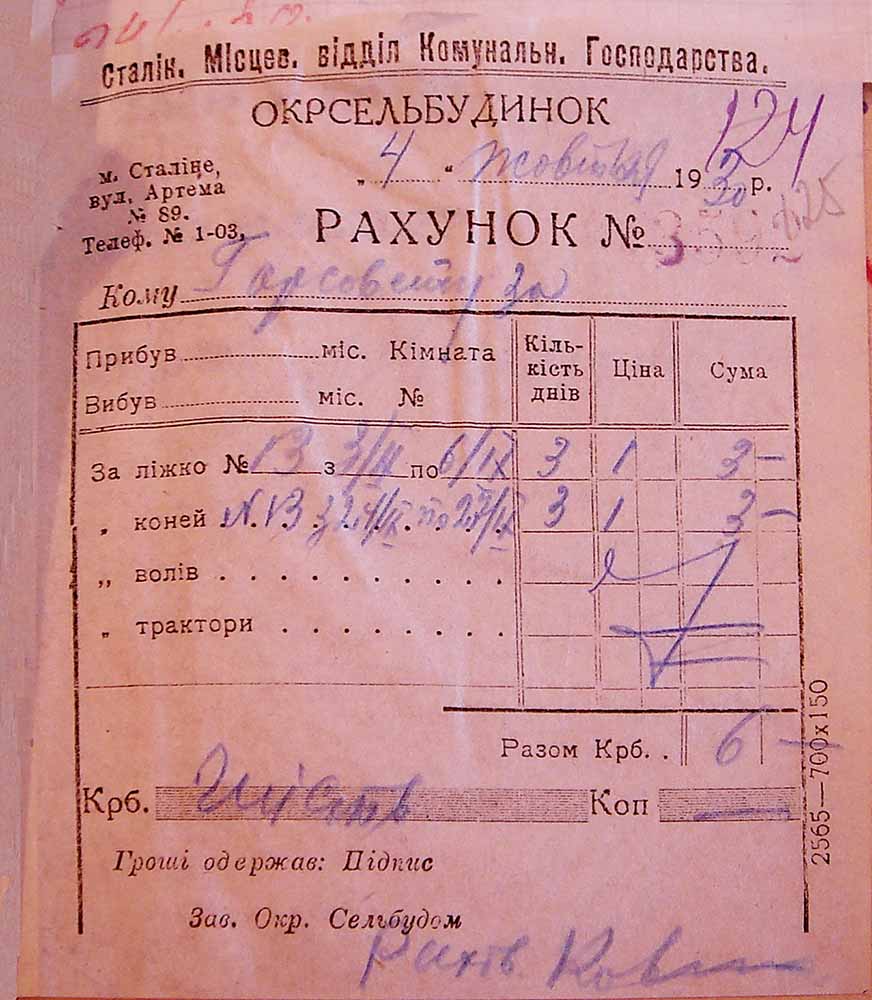 Сталін. Місцев. відділ Комунальн. Господарства.
ОКРСЕЛЬБУДИНОК
124
м. Сталіне,
вул. Артема
№ 89.
Телеф. № 1-03,
„ 4 “ жовтня 1930 р.
РАХУНОК №
Кому Горсовету за
Прибув міс. Кімната
Вибув міс. №
Кіль-
кість
днів
Ціна
Сума
За ліжко № 13 з 3/IX по 6/IX 3 1 3 —
„ коней N. 13 з 24/IX по 27/IX 3 1 3 —
„ волів
„ трактори
Разом Крб. . 6 —
Крб. Шість Коп —
Гроші одержав: Підпис
Зав. Окр. Сельбудом
2565—700х150